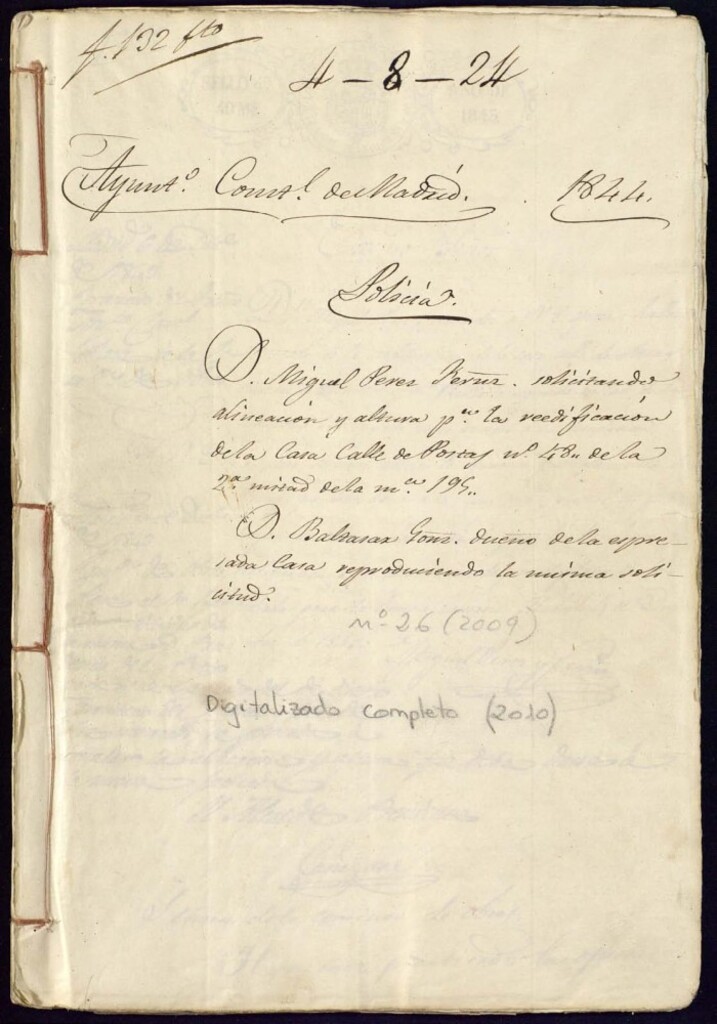 f. 132 fto
4 - 8 - 24
Ayuntº. Constl. de Madrid. 1844.
Policia.
D. Miguel Perez Fernz. solicitando
alineacion y altura pª. la reedificacion
de la Casa Calle de Postas nº. 48,, de la
2ª mitad de la mª. 195,,
D. Baltasar Gonz. dueño de la espre-
sada Casa reproduciendo la misma soli-
citud.
nº 26 (2009)
Digitalizado completo (2010)